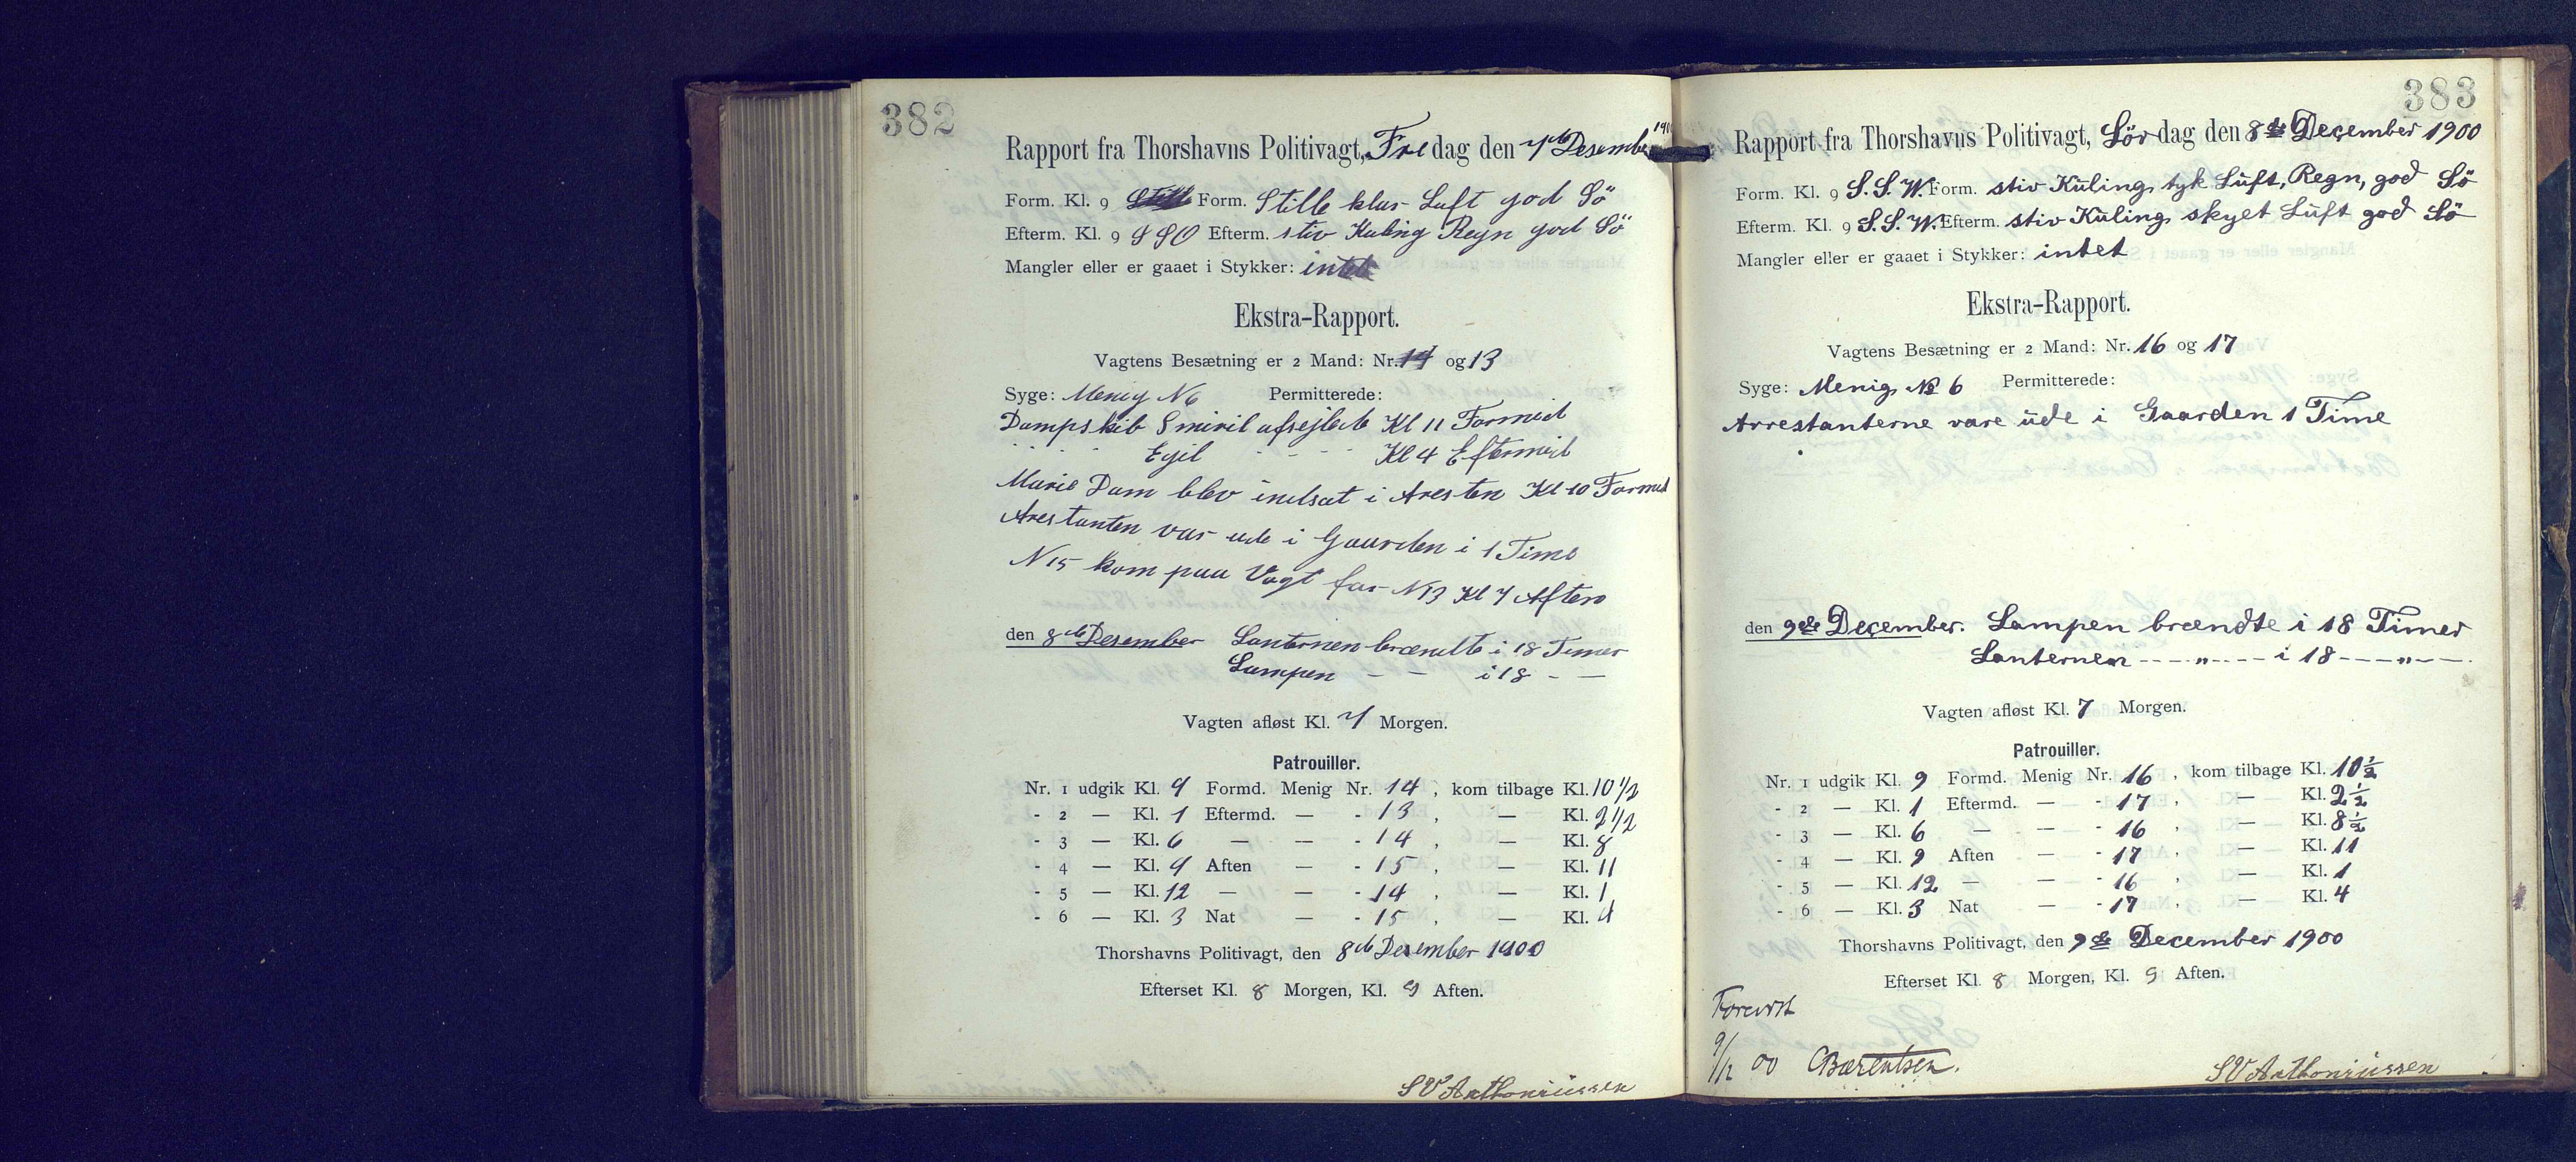 382
Rapport fra Thorshavns Politivagt, Fredag den 7de Desember 1900
Form. Kl. 9 Stille Form. Stille klar Luft god Sö
Efterm. Kl. 9 SSO Efterm. stiv Kuling Regn god Sö
Mangler eller er gaaet i Stykker: intet
Ekstra-Rapport.
Vagtens Besætning er 2 Mand: Nr. 14 og 13
Syge: Menig N 6 Permitterede:
Dampskib Smiril afsejlede Kl 11 Formid
" " " Egil - - - Kl 4 Eftermid
Marie Dam blev indsat i Aresten Kl 10 Formid
Arestanten var ude i Gaarden i 1 Time
N 15 kom paa Vagt for N 13 Kl 7 Aften
den 8de Desember Lanternen brændte i 18 Timer
Lampen - - i 18 - -
Vagten afløst Kl. 7 Morgen.
Patrouiller.
Nr. 1 udgik Kl. 9 Formd. Menig Nr. 14, kom tilbage Kl. 10 1/2
- 2 — Kl. 1 Eftermd. — - 13, — Kl. 2 1/2
- 3 — Kl. 6 — — - 14, — Kl. 8
- 4 — Kl. 9 Aften — - 15, — Kl. 11
- 5 — Kl. 12 — — - 14, — Kl. 1
- 6 — Kl. 3 Nat — - 15, — Kl. 4
Thorshavns Politivagt, den 8de Desember 1900
Efterset Kl. 8 Morgen, Kl. 9 Aften.
SV Anthoniussen
383
Rapport fra Thorshavns Politivagt, Lördag den 8de December 1900
Form. Kl. 9 S.S.W. Form. stiv Kuling, tyk Luft, Regn, god Sö
Efterm. Kl. 9 S.S.W. Efterm. stiv Kuling, skyet Luft god Sö
Mangler eller er gaaet i Stykker: intet
Ekstra-Rapport.
Vagtens Besætning er 2 Mand: Nr. 16 og 17
Syge: Menig № 6 Permitterede:
Arrestanterne vare ude i Gaarden 1 Time
den 9de December. Lampen brændte i 18 Timer
Lanternen - - - " - - - i 18 - - - " - - -
Vagten afløst Kl. 7 Morgen.
Patrouiller.
Nr. 1 udgik Kl. 9 Formd. Menig Nr. 16, kom tilbage Kl. 10 1/2
- 2 — Kl. 1 Eftermd. — - 17, — Kl. 2 1/2
- 3 — Kl. 6 — — - 16, — Kl. 8 1/2
- 4 — Kl. 9 Aften — - 17, — Kl. 11
- 5 — Kl. 12 — — - 16, — Kl. 1
- 6 — Kl. 3 Nat — - 17, — Kl. 4
Thorshavns Politivagt, den 9de December 1900
Efterset Kl. 8 Morgen, Kl. 9 Aften.
Forevist
9/12 00 CBærentsen.
SV Anthoniussen